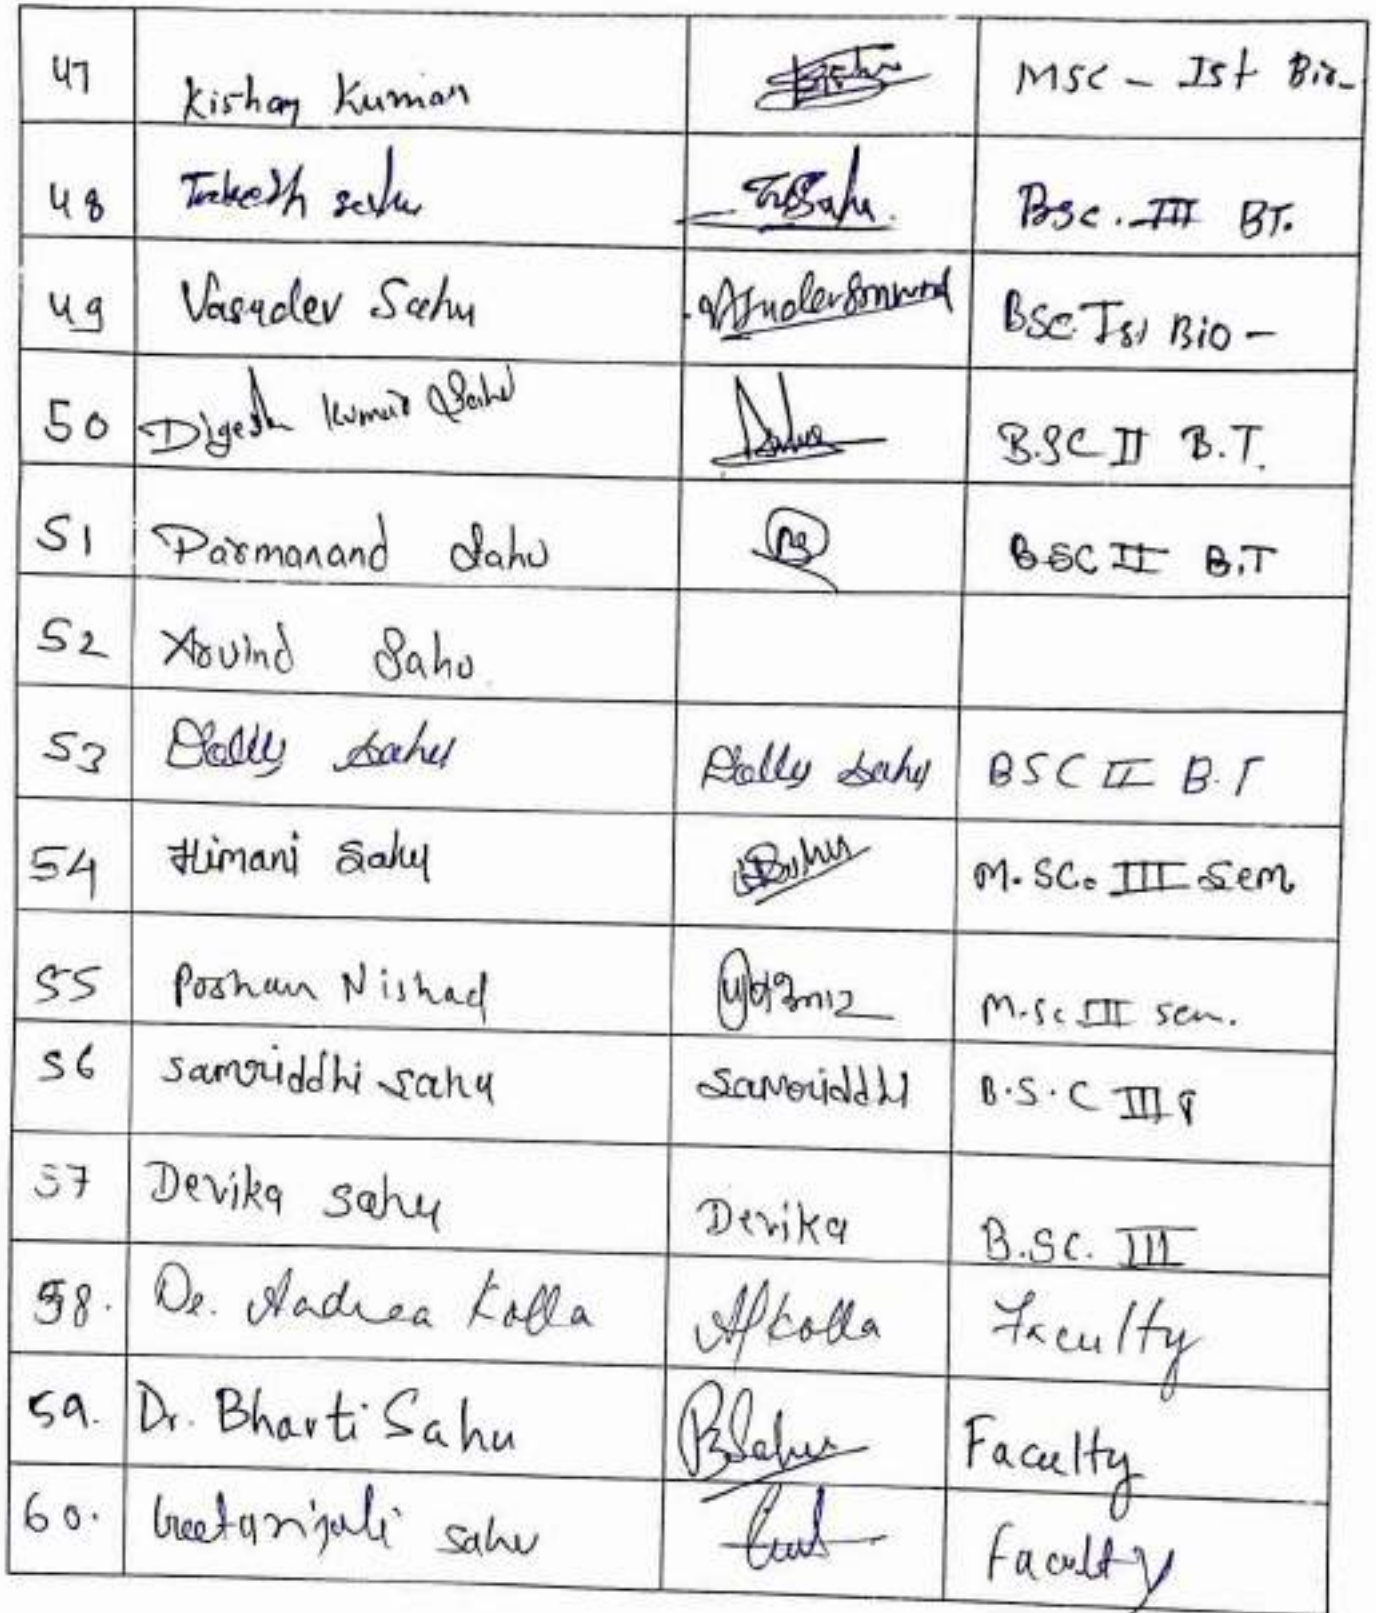 47 Kishan Kumar MSC - Ist Bio-
48 sahu Sahu. Bsc. III BT.
49 Vasudev Sahu BSC Ist Bio -
50 Digesh Kumar Sahu Sahu B.SC II B.T.
51 Parmanand Sahu BSC II B.T
52 Arvind Sahu
53 Dolly sahu Dolly sahu BSC II B.T
54 Himani Sahu Sahu M.SC. III Sem
55 Poshan Nishad M.Sc III sem.
56 Samriddhi sahu Samriddhi B.S.C III
57 Devika sahu Devika B.SC. III
58. Dr. Kolla APKolla Faculty
59. Dr. Bharti Sahu BSahu Faculty
60. Geetanjali sahu Faculty